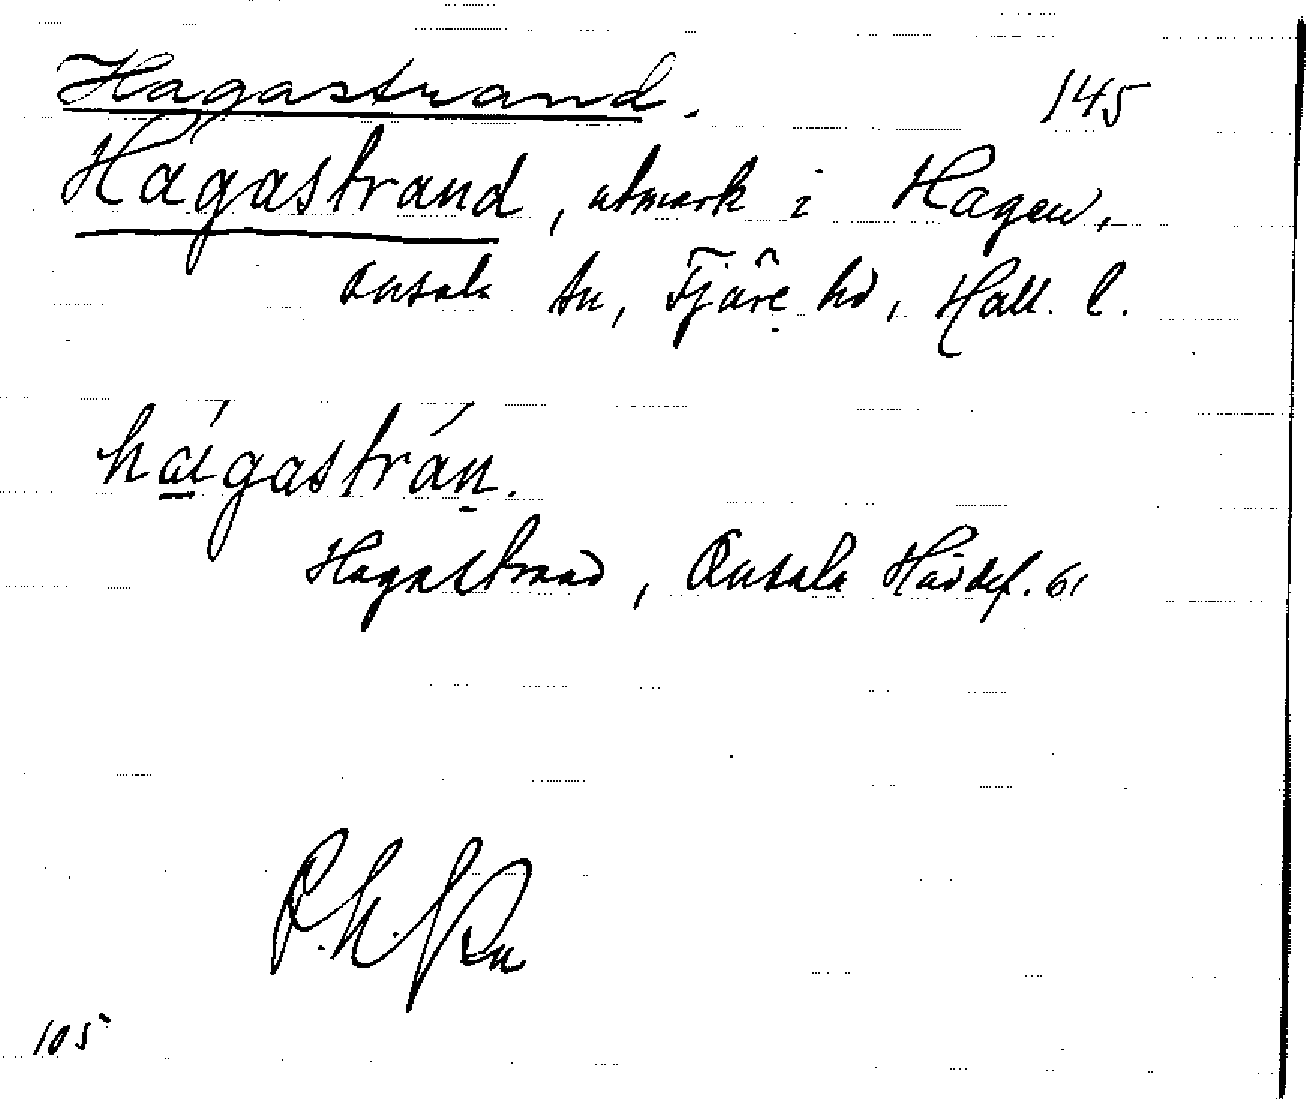 Hagastrand.
145
Hagastrand, utmark i Hagen,
Onsala sn, Fjäre hd, Hall. l.
hágastrán.
Hagastrand, Onsala Häradsf. 61
105